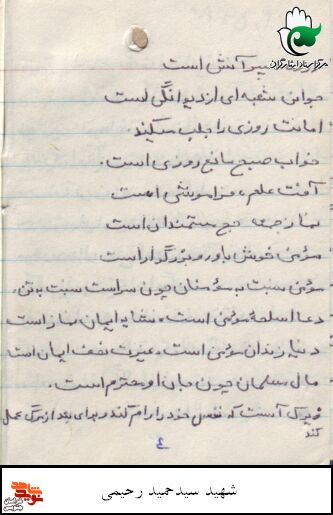 مرکز اسناد ایثارگران
سپر آتش است
جوانی شعبه ای از دیوانگی است
امانت روزی را جلب میکند.
خواب صبح مانع روزی است.
آفت علم، فراموشی است
نماز جمعه حج مستمندان است
مؤمن خوش باور و بزرگوار است
مؤمن نسبت به مؤمنان چون سر است نسبت به تن.
دعا اسلحه مؤمن است. نشانه ایمان نماز است
دنیا زندان مؤمن است. عزت نصف ایمان است
مال مسلمان چون جان او محترم است.
زیرک آنست که نفس خود را رام کند و برای بعد از مرگ عمل
کند
٤
شهید سیدحمید رحیمی